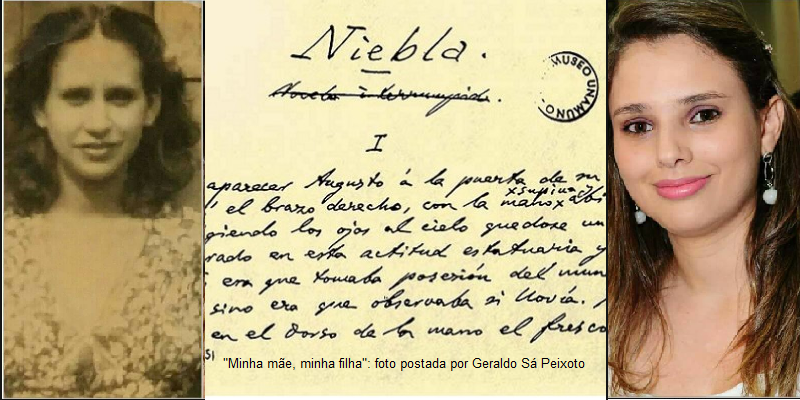 Niebla.
Novela interrumpida.
MUSEO UNAMUNO
I
aparecer Augusto á la puerta de su
el brazo derecho, con la mano abi
giendo los ojos al cielo quedose un
rado en esta actitud estatuaria y
era que tomaba posesión del mun
sino era que observaba si llovía.
en el dorso de la mano el fresco
"Minha mãe, minha filha": foto postada por Geraldo Sá Peixoto